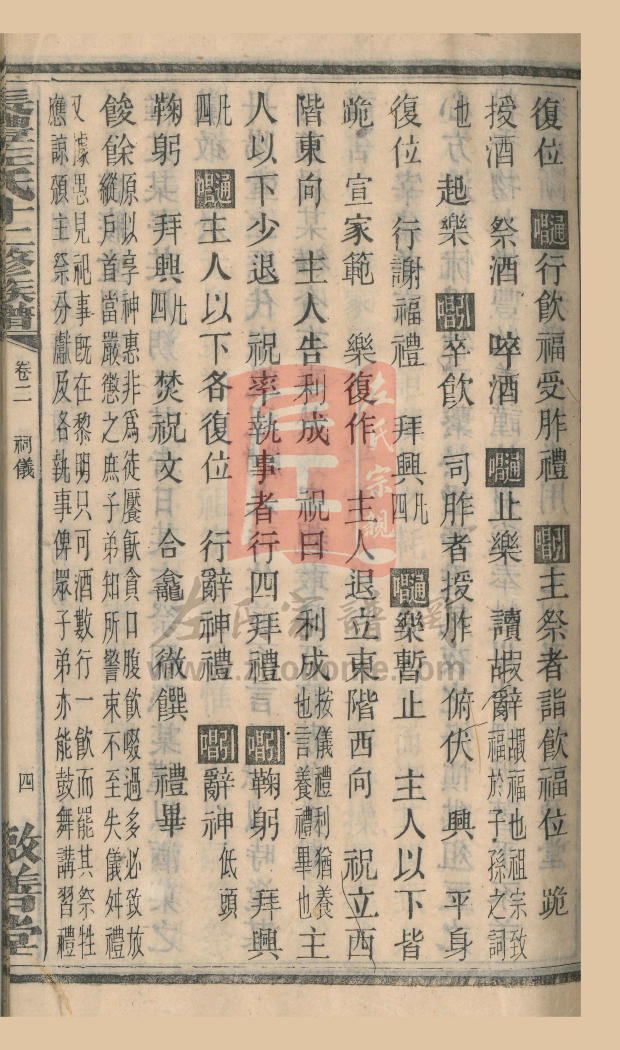 復位 通唱 行飲福受胙禮 引唱 主祭者詣飲福位 跪
授酒 祭酒 啐酒 通唱 止樂 讀嘏辭 嘏福也祖宗致福於子孫之詞
也 起樂 引唱 卒飲 司胙者授胙 俯伏 興 平身
復位 行謝福禮 拜興凡四 通唱 樂暫止 主人以下皆
跪 宣家範 樂復作 主人退立東階西向 祝立西
階東向 主人告利成 祝曰 利成 按儀禮利猶養也言養禮畢也 主
人以下少退 祝率執事者行四拜禮 引唱 鞠躬 拜興
凡四 通唱 主人以下各復位 行辭神禮 引唱 辭神 低頭
鞠躬 拜興凡四 焚祝文 合龕 徹饌 禮畢
餕餘 原以享神惠非爲徒饜飫貪口腹飲啜過多必致放
縱戶首當嚴懲之庶子弟知所警束不至失儀舛禮
又據愚見祀事既在黎明只可酒數行一飲而罷其祭牲
應諒頒主祭分獻及各執事俾眾子弟亦能鼓舞講習禮
長豐左氏十二修族譜
卷二 祠儀
四
啟善堂
左氏宗親
左氏宗譜網